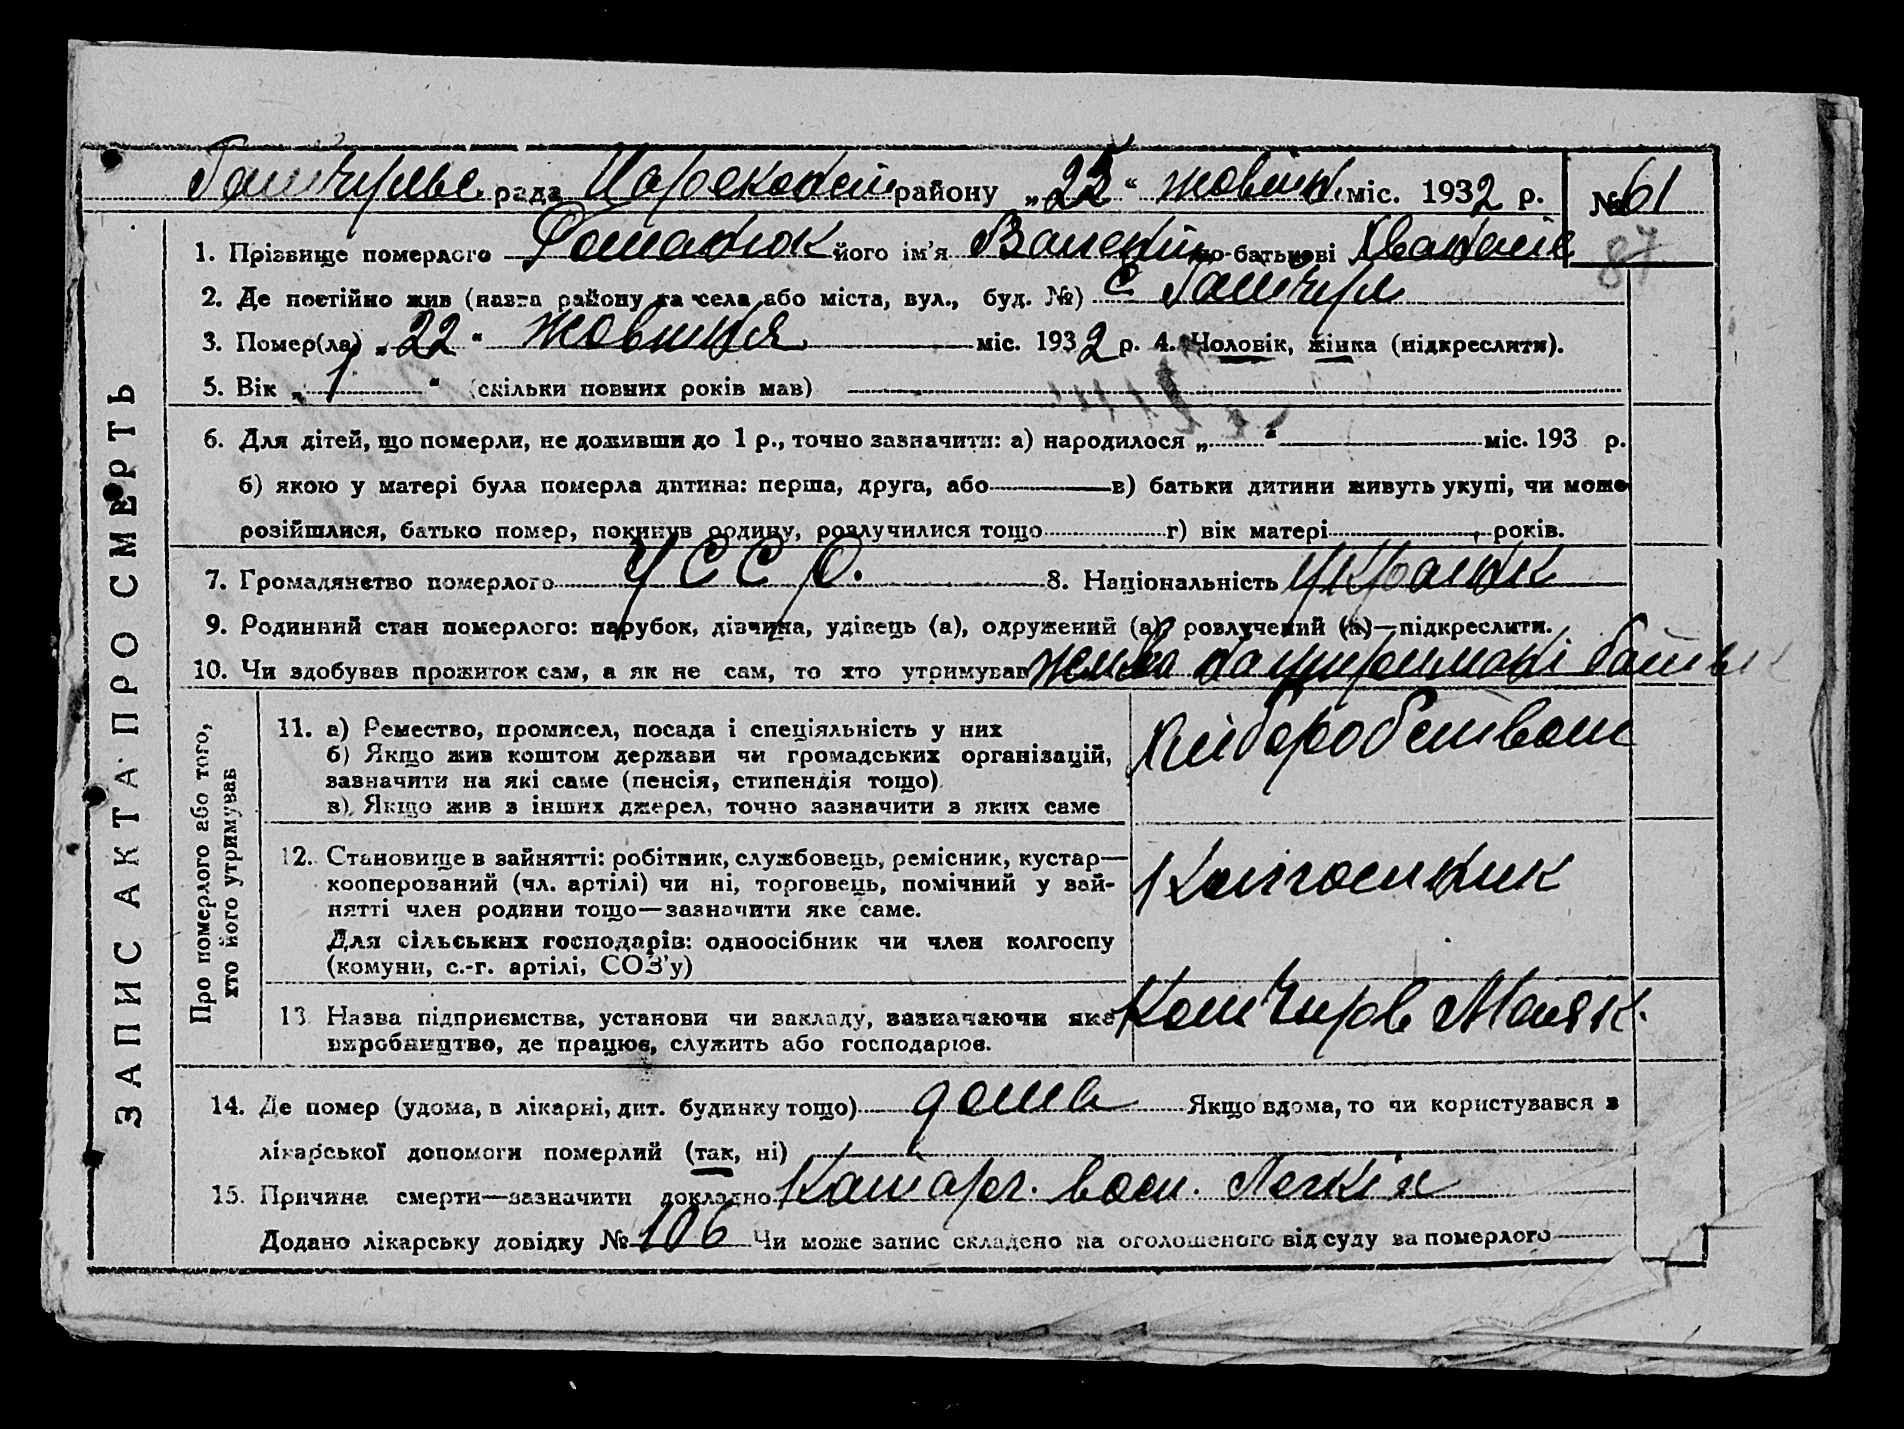 рада району „25“ жовтня міс. 1932 р. № 61
1. Прізвище померлого його ім'я по-батькові 87
2. Де постійно жив (назва району та села або міста, вул., буд. №) с
3. Помер(ла) „22“ жовтня міс. 1932 р. 4. Чоловік, жінка (підкреслити).
5. Вік „1“ (скільки повних років мав)
6. Для дітей, що померли, не доживши до 1 р., точно зазначити: а) народилося „ “ міс. 193 р.
б) якою у матері була померла дитина: перша, друга, або в) батьки дитини живуть укупі, чи може
розійшлися, батько помер, покинув родину, розлучилися тощо г) вік матері років.
7. Громадянство померлого УССР. 8. Національність
9. Родинний стан померлого: парубок, дівчина, удівець (а), одружений (а), розлучений (а)—підкреслити.
10. Чи здобував прожиток сам, а як не сам, то хто утримував на
ЗАПИС АКТА ПРО СМЕРТЬ
Про померлого або того,
хто його утримував
11. а) Ремество, промисел, посада і спеціяльність у них
б) Якщо жив коштом держави чи громадських організацій,
зазначити на які саме (пенсія, стипендія тощо).
в) Якщо жив з інших джерел, точно зазначити з яких саме
12. Становище в зайнятті: робітник, службовець, ремісник, кустар—
кооперований (чл. артілі) чи ні, торговець, помічний у зай-
нятті член родини тощо—зазначити яке саме.
Для сільських господарів: одноосібник чи член колгоспу
(комуни, с.-г. артілі, СОЗ'у)
Колгоспник
13. Назва підприємства, установи чи закладу, зазначаючи яке
виробництво, де працює, служить або господарює.
Маяк.
14. Де помер (удома, в лікарні, дит. будинку тощо) дома Якщо вдома, то чи користувався з
лікарської допомоги померлий (так, ні)
15. Причина смерти—зазначити докладно Катар. восп. Легкіх
Додано лікарську довідку № 106 Чи може запис складено на оголошеного від суду за померлого